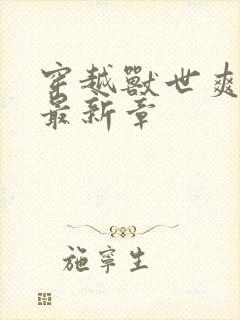 穿越獸世爽
最新章
施寧生